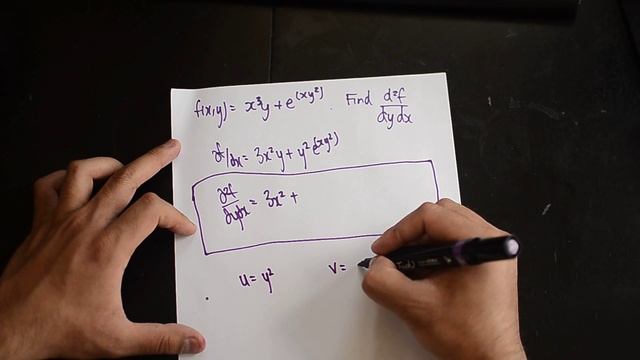 f(x,y) = x³y + e^(xy²). Find d²f/dydx
∂f/∂x = 3x²y + y² e^(xy²)
∂²f/∂y∂x = 3x² +
u = y² v =